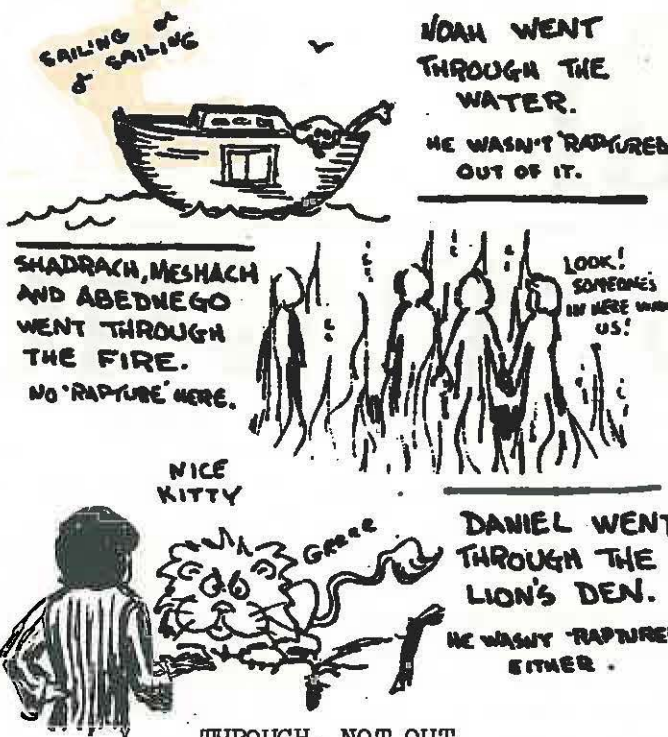 SAILING &
& SAILING
NOAH WENT
THROUGH THE
WATER.
HE WASN'T 'RAPTURED
OUT OF IT.
SHADRACH, MESHACH
AND ABEDNEGO
WENT THROUGH
THE FIRE.
NO 'RAPTURE' HERE.
LOOK!
SOMEONE'S
IN HERE WITH
US!
NICE
KITTY
GRRRR
DANIEL WENT
THROUGH THE
LION'S DEN.
HE WASN'T 'RAPTURED
EITHER.
THROUGH - NOT OUT